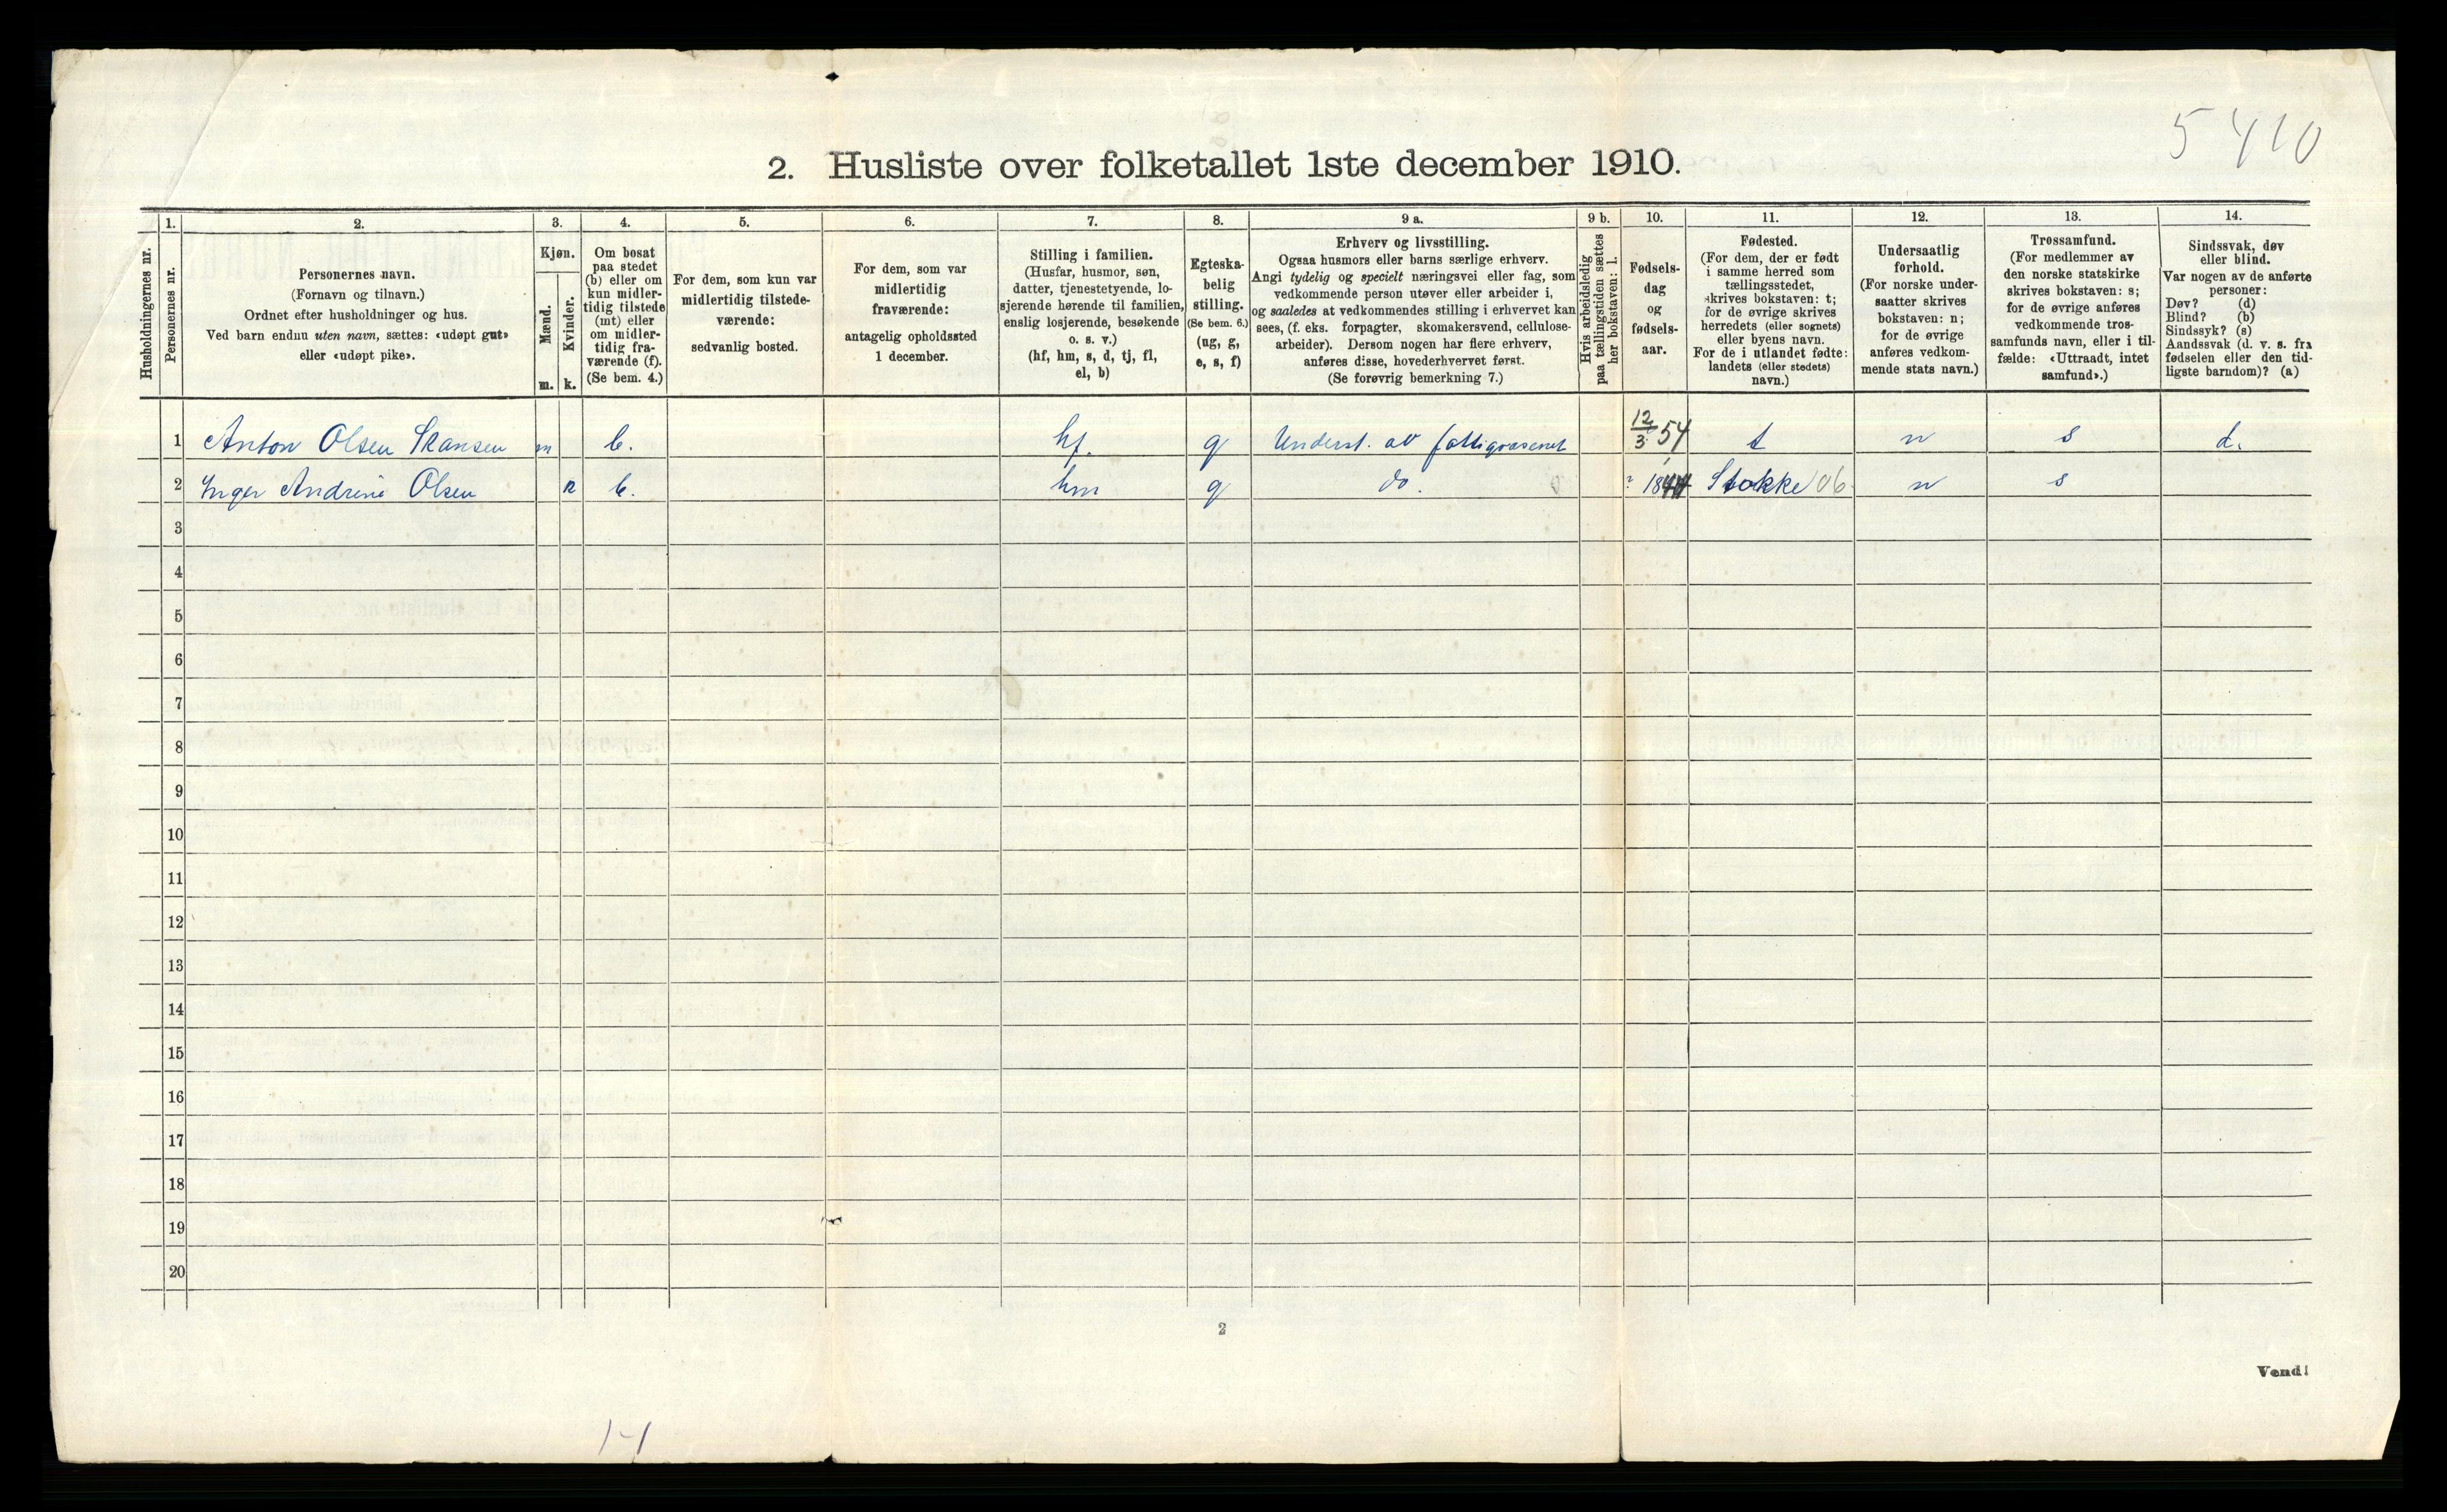 5410
2. Husliste over folketallet 1ste december 1910.
Husholdningernes nr.
1.
Personernes nr.
2.
Personernes navn.
(Fornavn og tilnavn.)
Ordnet efter husholdninger og hus.
Ved barn endnu uten navn, sættes: «udøpt gut»
eller «udøpt pike».
3.
Kjøn.
Mænd.
Kvinder.
m. k.
4.
Om bosat
paa stedet
(b) eller om
kun midler-
tidig tilstede
(mt) eller
om midler-
tidig fra-
værende (f).
(Se bem. 4.)
5.
For dem, som kun var
midlertidig tilstede-
værende:
sedvanlig bosted.
6.
For dem, som var
midlertidig
fraværende:
antagelig opholdssted
1 december.
7.
Stilling i familien.
(Husfar, husmor, søn,
datter, tjenestetyende, lo-
sjerende hørende til familien,
enslig losjerende, besøkende
o. s. v.)
(hf, hm, s, d, tj, fl,
el, b)
8.
Egteska-
belig
stilling.
(Se bem. 6.)
(ug, g,
e, s, f)
9 a.
Erhverv og livsstilling.
Ogsaa husmors eller barns særlige erhverv.
Angi tydelig og specielt næringsvei eller fag, som
vedkommende person utøver eller arbeider i,
og saaledes at vedkommendes stilling i erhvervet kan
sees, (f. eks. forpagter, skomakersvend, cellulose-
arbeider). Dersom nogen har flere erhverv,
anføres disse, hovederhvervet først.
(Se forøvrig bemerkning 7.)
9 b.
Hvis arbeidsledig
paa tællingstiden sættes
her bokstaven: l.
10.
Fødsels-
dag
og
fødsels-
aar.
11.
Fødested.
(For dem, der er født
i samme herred som
tællingsstedet,
skrives bokstaven: t;
for de øvrige skrives
herredets (eller sognets)
eller byens navn.
For de i utlandet fødte:
landets (eller stedets)
navn.)
12.
Undersaatlig
forhold.
(For norske under-
saatter skrives
bokstaven: n;
for de øvrige
anføres vedkom-
mende stats navn.)
13.
Trossamfund.
(For medlemmer av
den norske statskirke
skrives bokstaven: s;
for de øvrige anføres
vedkommende tros-
samfunds navn, eller i til-
fælde: «Uttraadt, intet
samfund».)
14.
Sindssvak, døv
eller blind.
Var nogen av de anførte
personer:
Døv? (d)
Blind? (b)
Sindssyk? (s)
Aandssvak (d. v. s. fra
fødselen eller den tid-
ligste barndom)? (a)
1 Anton Olsen Skansen m b. hf. g Underst. av fattigvæsenet 12/3 54 t n s d.
2 Inger Andrine Olsen k b. hm g do. ? 1844 Stokke 06 n s
3
4
5
6
7
8
9
10
11
12
13
14
15
16
17
18
19
20
2
Vend!